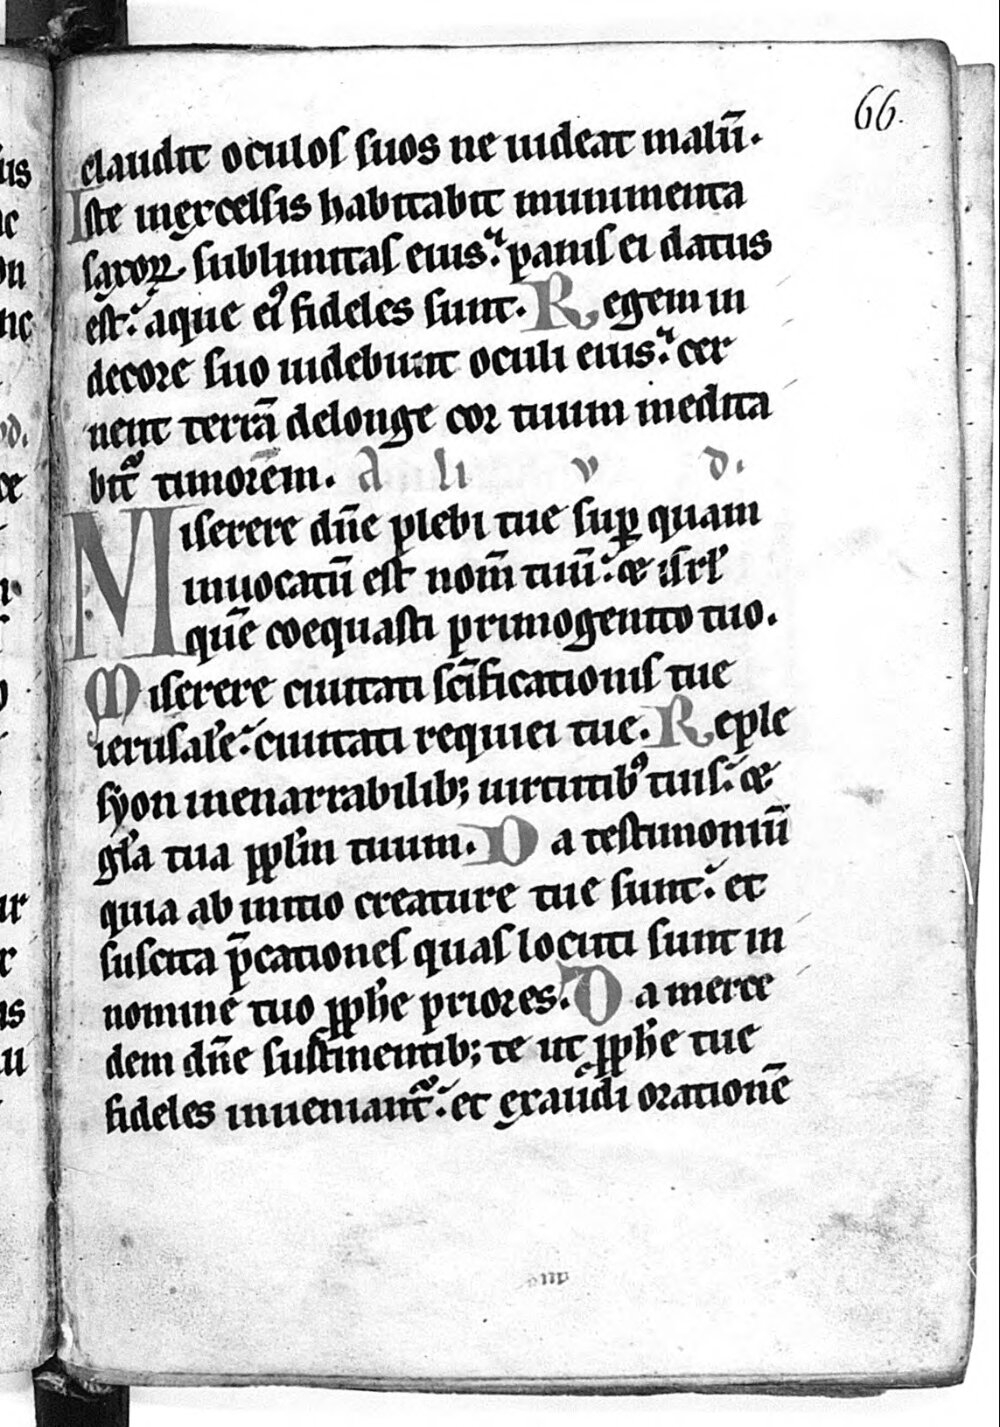 66.
claudit oculos suos ne uideat malū.
Iste inexcelsis habitabit munimenta
saxoꝝ sublimitas eius: panis ei datus
est: aque eiꝰ fideles sunt. Regem in
decore suo uidebunt oculi eius: cer
nent terrā delonge cor tuum medita
bit᷑ timorem. A li v d.
Miserere dn̄e plebi tue sup̱ quam
inuocatū est nom̄ tuū: & isrl̓
quē coequasti primogenito tuo.
Miserere ciuitati sc̄ificationis tue
ierusal̓e: ciuitati requiei tue. Reple
syon inenarrabilib; uirtutibꝰ tuis: &
gl̓a tua ppl̓m tuum. Da testimoniū
quia ab initio creature tue sunt: et
suscita p̄cationes quas locuti sunt in
nomine tuo pph̓e priores. Da merce
dem dn̄e sustinentib; te ut pph̓e tue
fideles inueniant᷑: et exaudi orationē